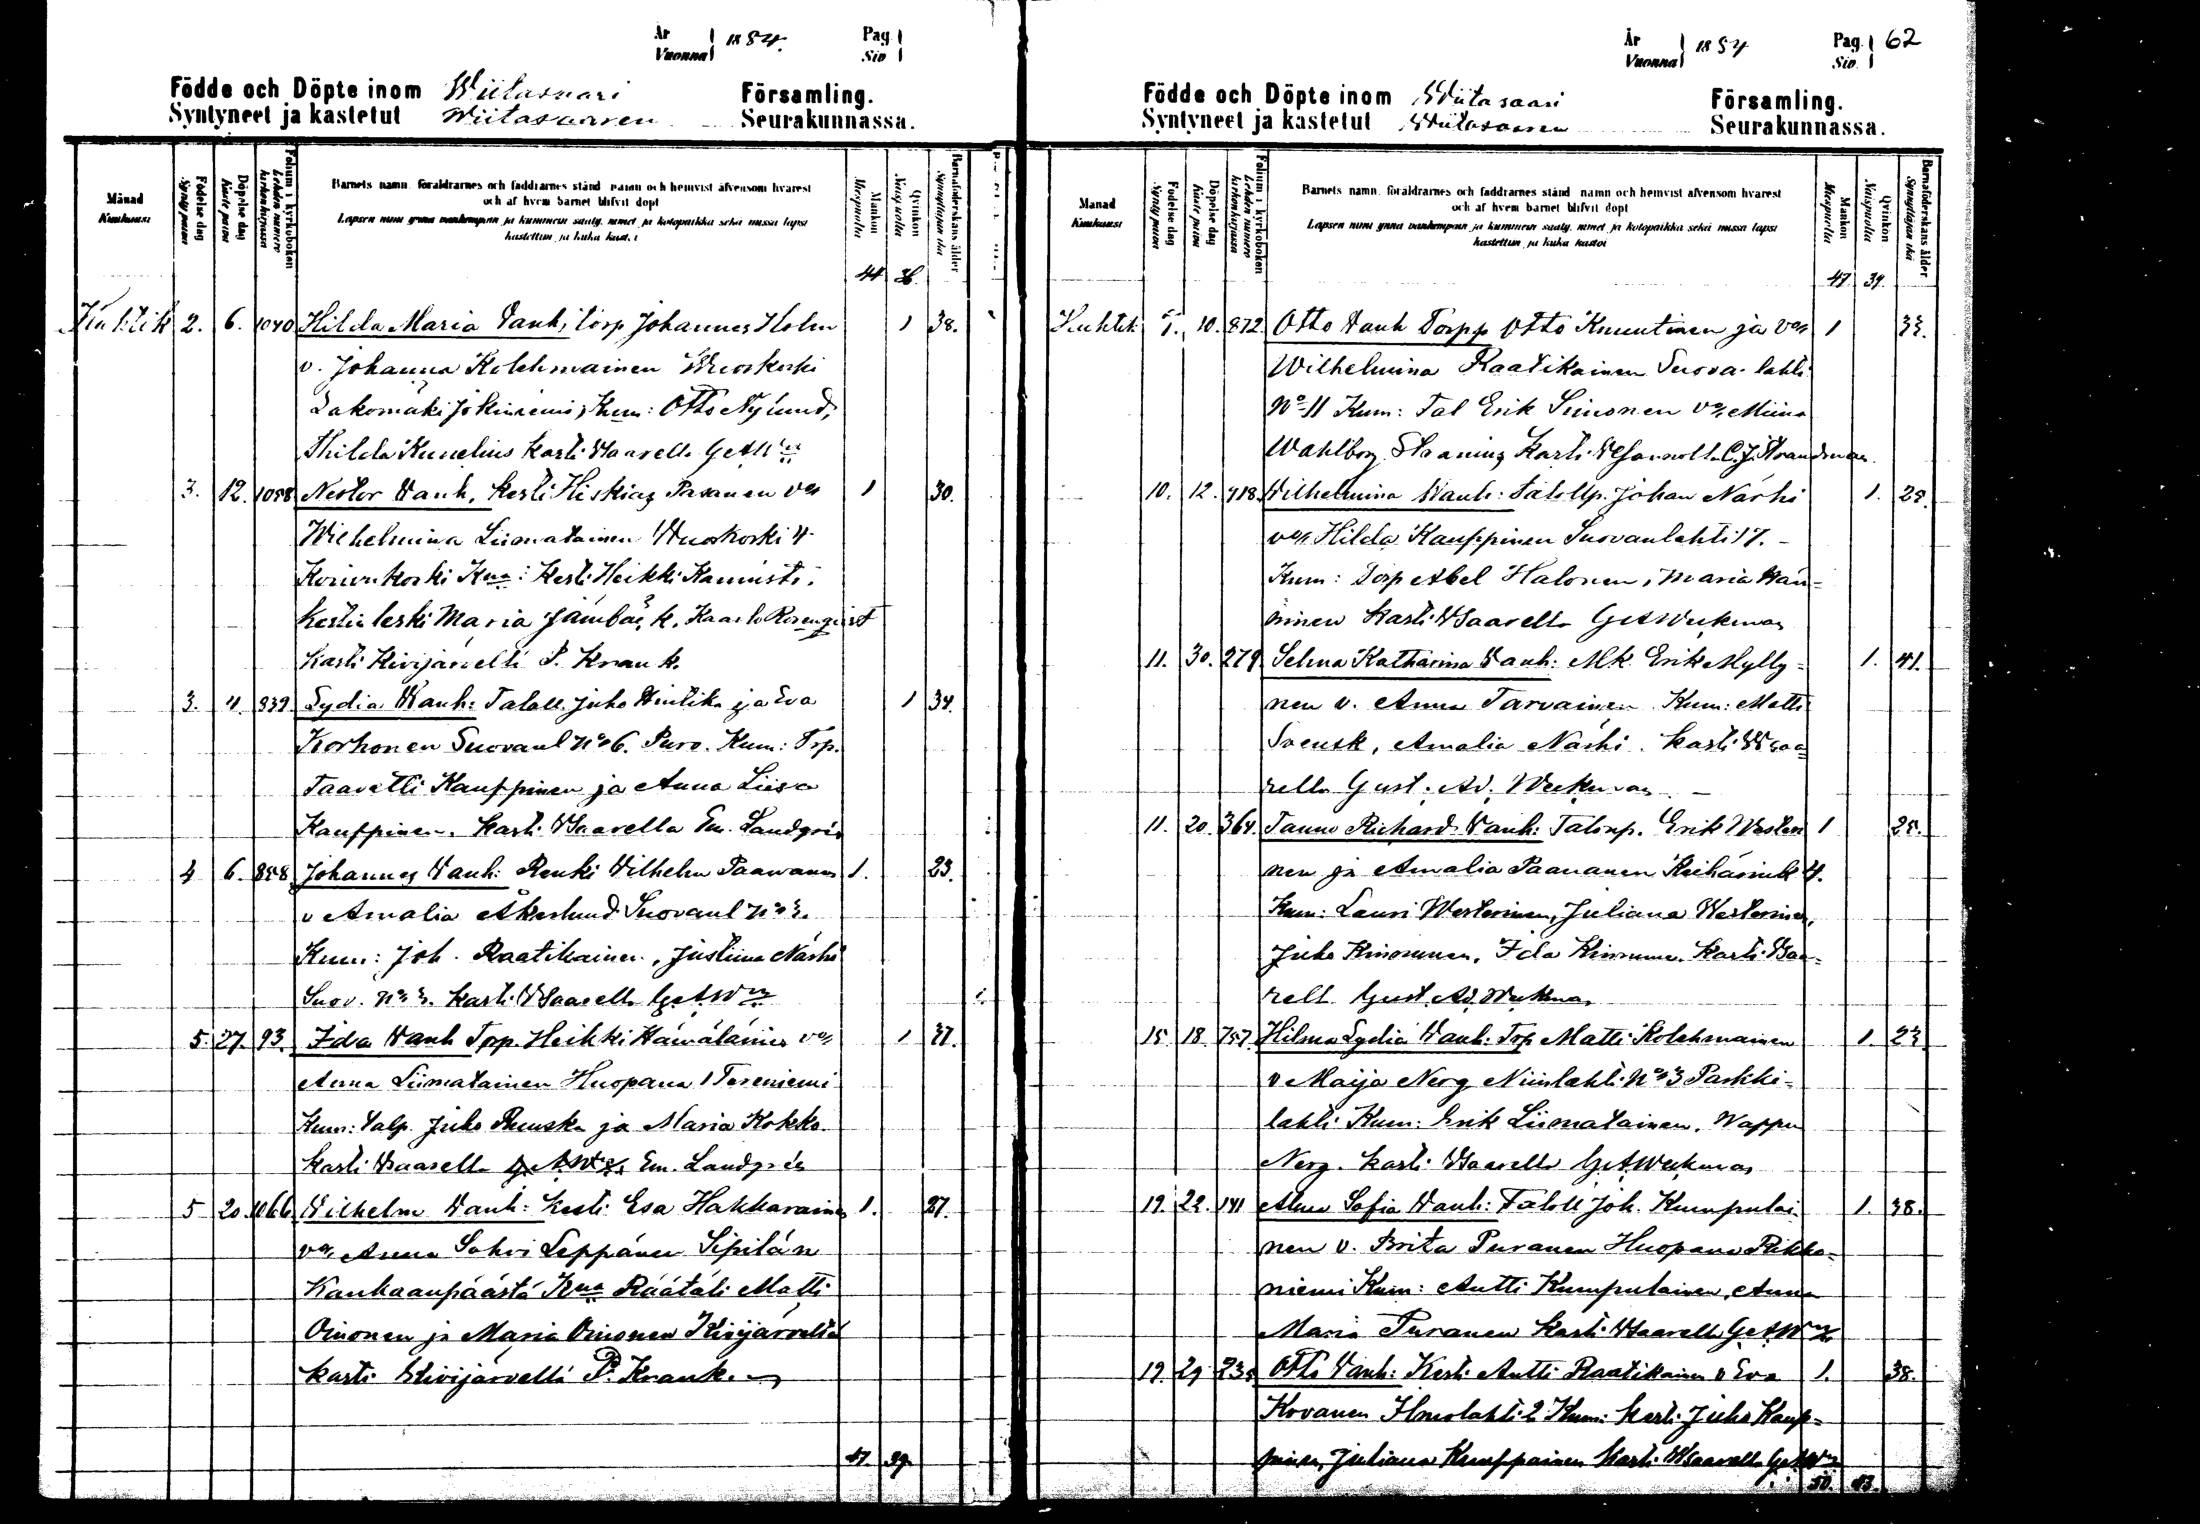 År
Vuonna 1884.
Pag.
Siv
Födde och Döpte inom Wiitasaari Församling.
Syntyneet ja kastetut Wiitasaaren Seurakunnassa.
Månad
Kuukausi
Födelse dag
Synty päivä
Döpelse dag
Kaste päivä
Folium i kyrkoboken
Lehden numero kirkonkirjassa
Barnets namn, föräldrarnes och faddrarnes stånd, namn och hemvist äfvensom hvarest
och af hvem barnet blifvit döpt
Lapsen nimi ynnä vanhempain ja kummein sääty, nimet ja kotopaikka sekä missä lapsi
kastettiin ja kuka kastoi
Mankön
Miespuolia
Qvinkön
Naispuolia
Barnaföderskans ålder
Synnyttäjän ikä
44 36
Huhtik 2. 6. 1040 Hilda Maria Vanh: torp Johannes Holm 1 38.
v. Johanna Kolehmainen Wuoskoski
Kum: Otto Nylund,
Thilda Kunelius kasti Wsaarella
3. 12. 1058 Nestor Vanh. kesti Hiskias Pasanen 1 30.
Wilhelmina Liimatainen Wuoskoski 4
Koski Kum: kesti Heikki
Maria Jämbäck, Kaarlo Rosenqvist
kasti Kivijärvellä P. Krank.
3. 11. 839 Lydia Vanh: Taloll. Juho Hintikka ja Eva 1 34.
Korhonen Suovanl No 6. Puro. Kum: Trp.
Taavetti Kauppinen ja Anna Liisa
Kauppinen. kasti Wsaarella Em. Landgrén
4 6. 858 Johannes Vanh: Renki Vilhelm Paananen 1. 23.
v Amalia Åkerlund Suovanl No 3.
Kum: Joh. Raatikainen, Justiina Närhi
Suov. No 3. kasti Wsaarella
5. 27. 93. Ida Vanh Tpp. Heikki Hämäläinen 1 37.
Anna Liimatainen Huopana 1 Tereniemi
Kum: talp. Juho Ruuska ja Maria Kokko
kasti Wsaarella Em. Landgrén
5 20. 1066 Vilhelm Vanh: kesti Esa Hakkarainen 1. 27.
Anna Sohvi Leppänen Sipilän
Kankaanpäästä Räätäli Matti
Oinonen ja Maria Oinonen Kivijärveltä
kasti Kivijärvellä P. Krank.
47 39
År
Vuonna 1884
Pag. 62
Siv.
Födde och Döpte inom Wiitasaari Församling.
Syntyneet ja kastetut Wiitasaaren Seurakunnassa.
Månad
Kuukausi
Födelse dag
Synty päivä
Döpelse dag
Kaste päivä
Folium i kyrkoboken
Lehden numero kirkonkirjassa
Barnets namn, föräldrarnes och faddrarnes stånd, namn och hemvist äfvensom hvarest
och af hvem barnet blifvit döpt
Lapsen nimi ynnä vanhempain ja kummein sääty, nimet ja kotopaikka sekä missä lapsi
kastettiin ja kuka kastoi
Mankön
Miespuolia
Qvinkön
Naispuolia
Barnaföderskans ålder
Synnyttäjän ikä
47 39.
Huhtik 10. 872 Otto Vanh Torpp Otto Knuutinen ja 1 33.
Wilhelmina Raatikainen Suovalahti
No 11 Kum: Tal Erik Simonen Miina
Wahlborg kasti C. J. Strandman
10. 12. 918 Wilhelmina Vanh: Johan Närhi 1. 25.
Hilda Kauppinen Suovanlahti 17. -
Kum: Torp Abel Halonen, Maria Hän=
ninen kasti Wsaarella G A Weckman
11. 30. 279 Selma Katharina Vanh: Mk Erik Mylly= 1. 41.
nen v. Anna Tarvainen Kum: Matti
Svensk, Amalia Närhi. kasti Wsaa=
rella Gust. Ad. Weckman. -
11. 20. 364 Tauno Richard Vanh: Erik Westeri 1 25.
nen ja Amalia Paananen 4.
Kum: Lauri Westerinen, Juliana Westerinen,
Juho Kinnunen, Ida Kinnunen. kasti Wsaa=
rell Gust. Ad. Weckman
15 18 757 Hilma Lydia Vanh: Trp Matti Kolehmainen 1. 23.
v Maija Nerg Niinilahti No 3 Paskki=
lahti Kum: Erik Liimatainen, Wappu
Nerg. kasti Wsaarella G A Weckman
19. 22. 141 Alma Sofia Vanh: Taloll Joh. Kumpulai= 1. 38.
nen v. Brita Puranen Huopana
niemi Kum: Antti Kumpulainen, Anna
Maria Puranen kasti Wsaarella
19. 29 Otto Vanh: Kesti Antti Raatikainen v Eva 1. 38.
Kovanen Ilmolahti 2 Kum: kesti Juho Kaup=
pinen, Juliana Kauppinen kasti Wsaarella
50. 43.